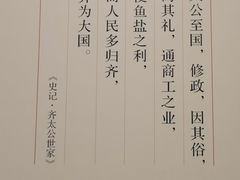 公至国，修政，因其俗，
其礼，通商工之业，
鱼盐之利，
人民多归齐，
为大国。
《史记·齐太公世家》